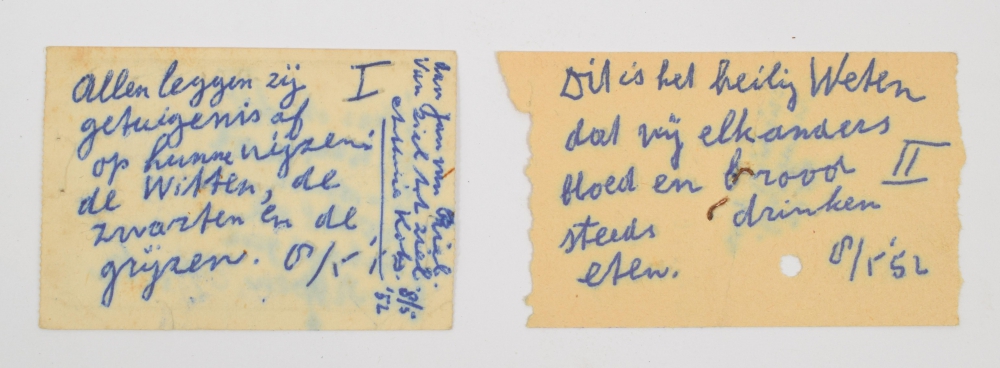 Allen leggen zij
I
getuigenis af
op hunne wijzen:
de Witten, de
zwarten en de
grijzen. 8/5
Aan Jan van Eriel.
Van Ziel tot ziel.
8/5 '52
Dit is het heilig Weten
dat wij elkanders
II
bloed en brood
drinken
steeds
eten.
8/5 '52